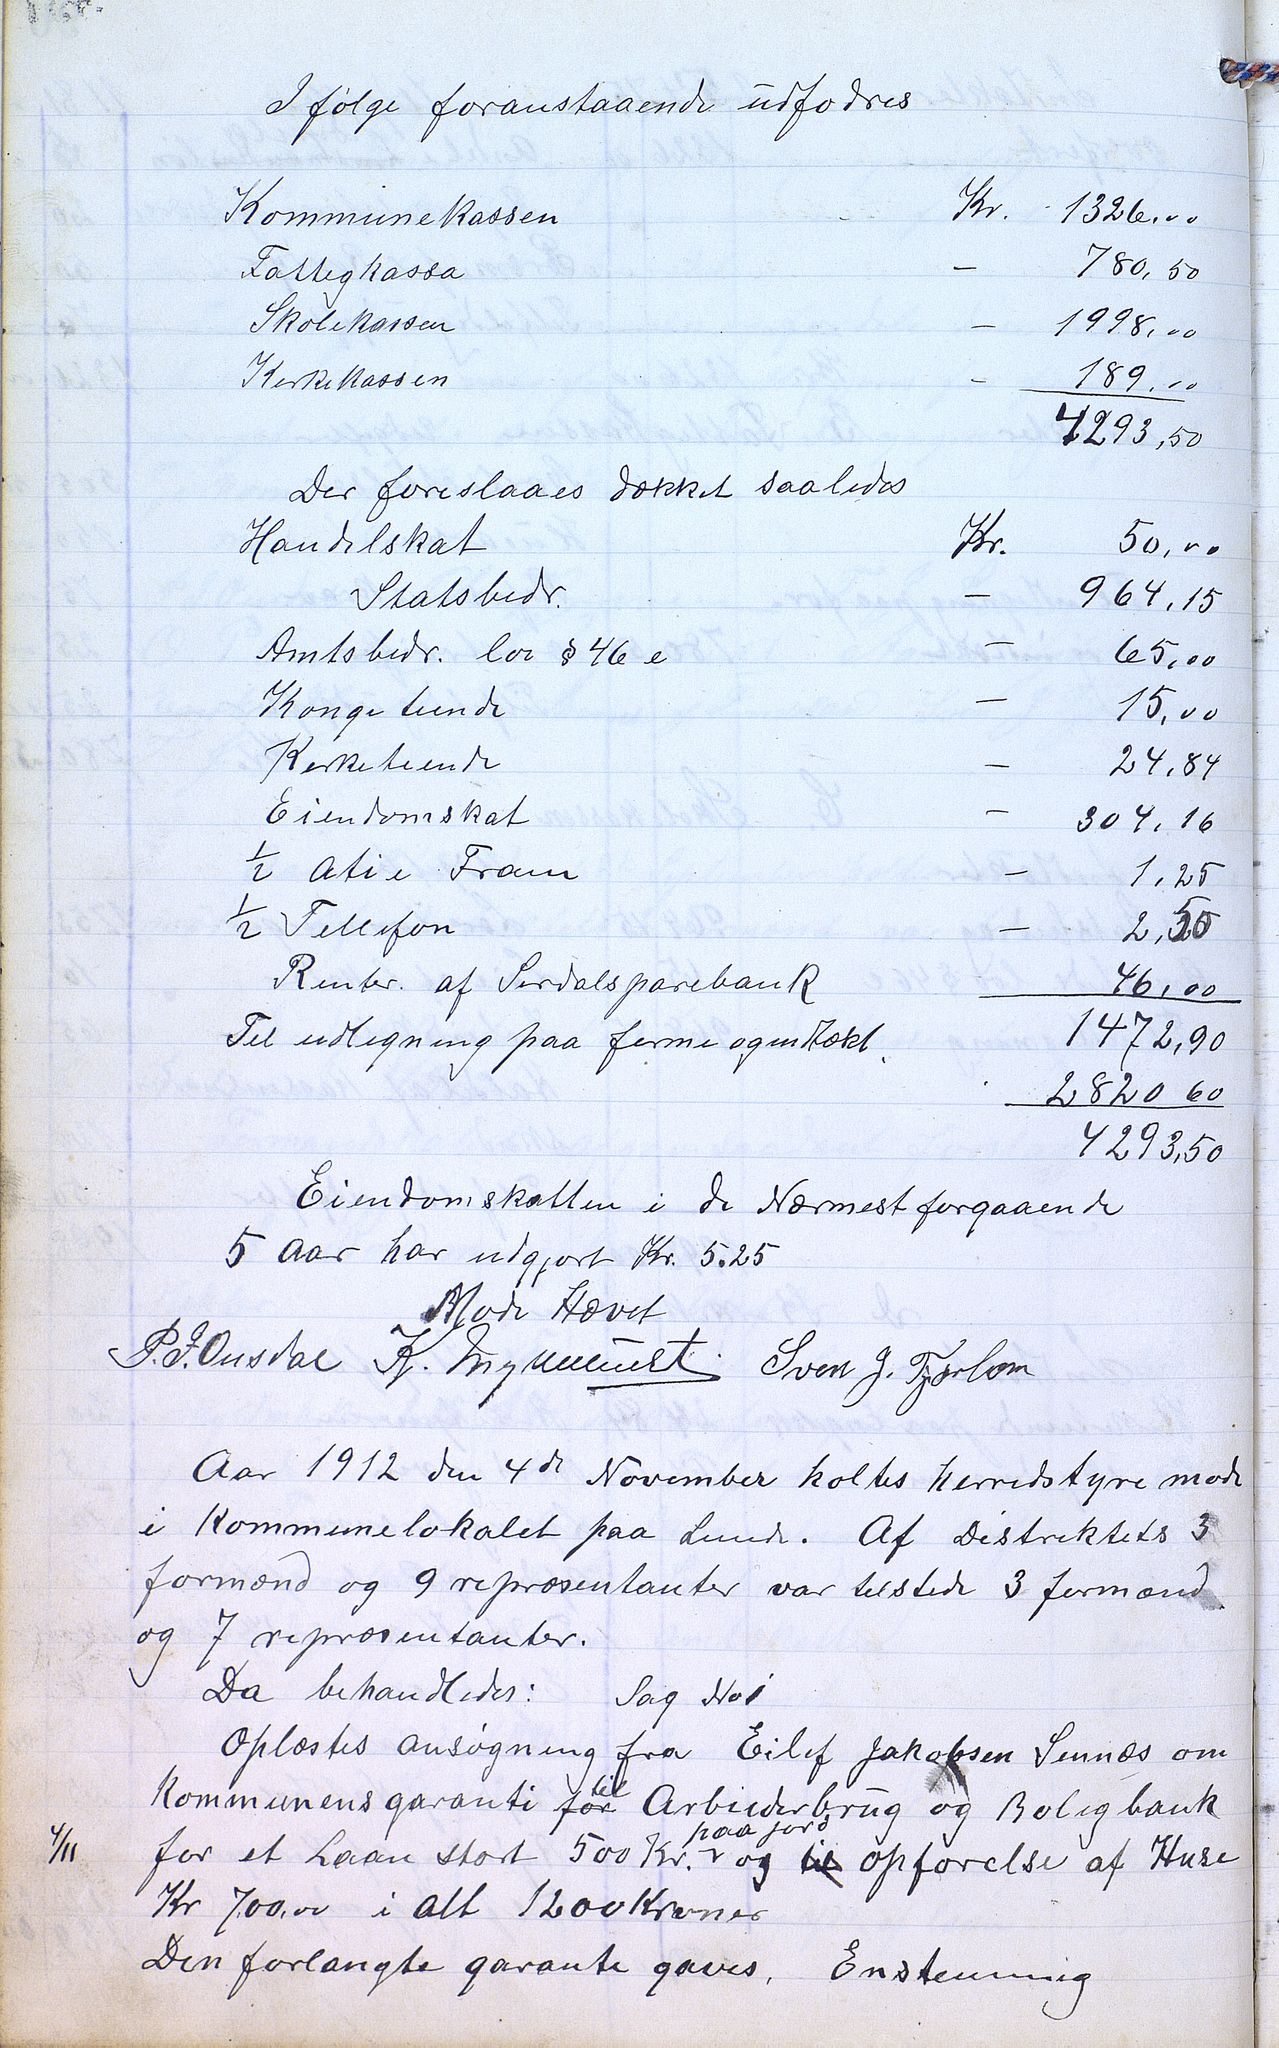 I følge foranstaaende udfodres
Kommunekassen Kr. 1326,00
Fattegkassa - 780,50
Skolekassen - 1998,00
Kerkekassen - 189,00
4293,50
Der foreslaaes dækket saaledes
Handelskat Kr. 50,00
Statsbedr. - 964,15
Amtsbedr. lov § 46 e - 65,00
Kongetiende - 15,00
Kerketiende - 24,84
Eiendomskat - 304,16
1/2 Atie Fram - 1,25
1/2 Tellefon - 2,50
Renter af Serdalsparebank 46,00
Til udlegning paa forme og indtækt. 1472,90
2820 60
4293,50
Eiendomskatten i de Nærmest forgaaende
5 Aar har udgjort Kr. 5.25
Møde Hævet
P.J. Ousdal K. Sven J. Tjørlom
Aar 1912 den 4de November holtes herredstyre møde
i Kommunelokalet paa Lunde. Af Distriktets 3
formænd og 9 repræsentanter var telstede 3 formænd
og 7 repræsentanter.
Da behandledes: Sag No 1
Oplæstes ansøgning fra Eilef Jakobsen Sinnes om
Kommunens garanti for til Arbeiderbrug og Boligbank
4/11 for et Laan stort 500 Kr. paa jord og til opførelse af Huse
Kr 700,00 i alt 1200 Kroner
Den forlangte garante gaves. Enstemmig